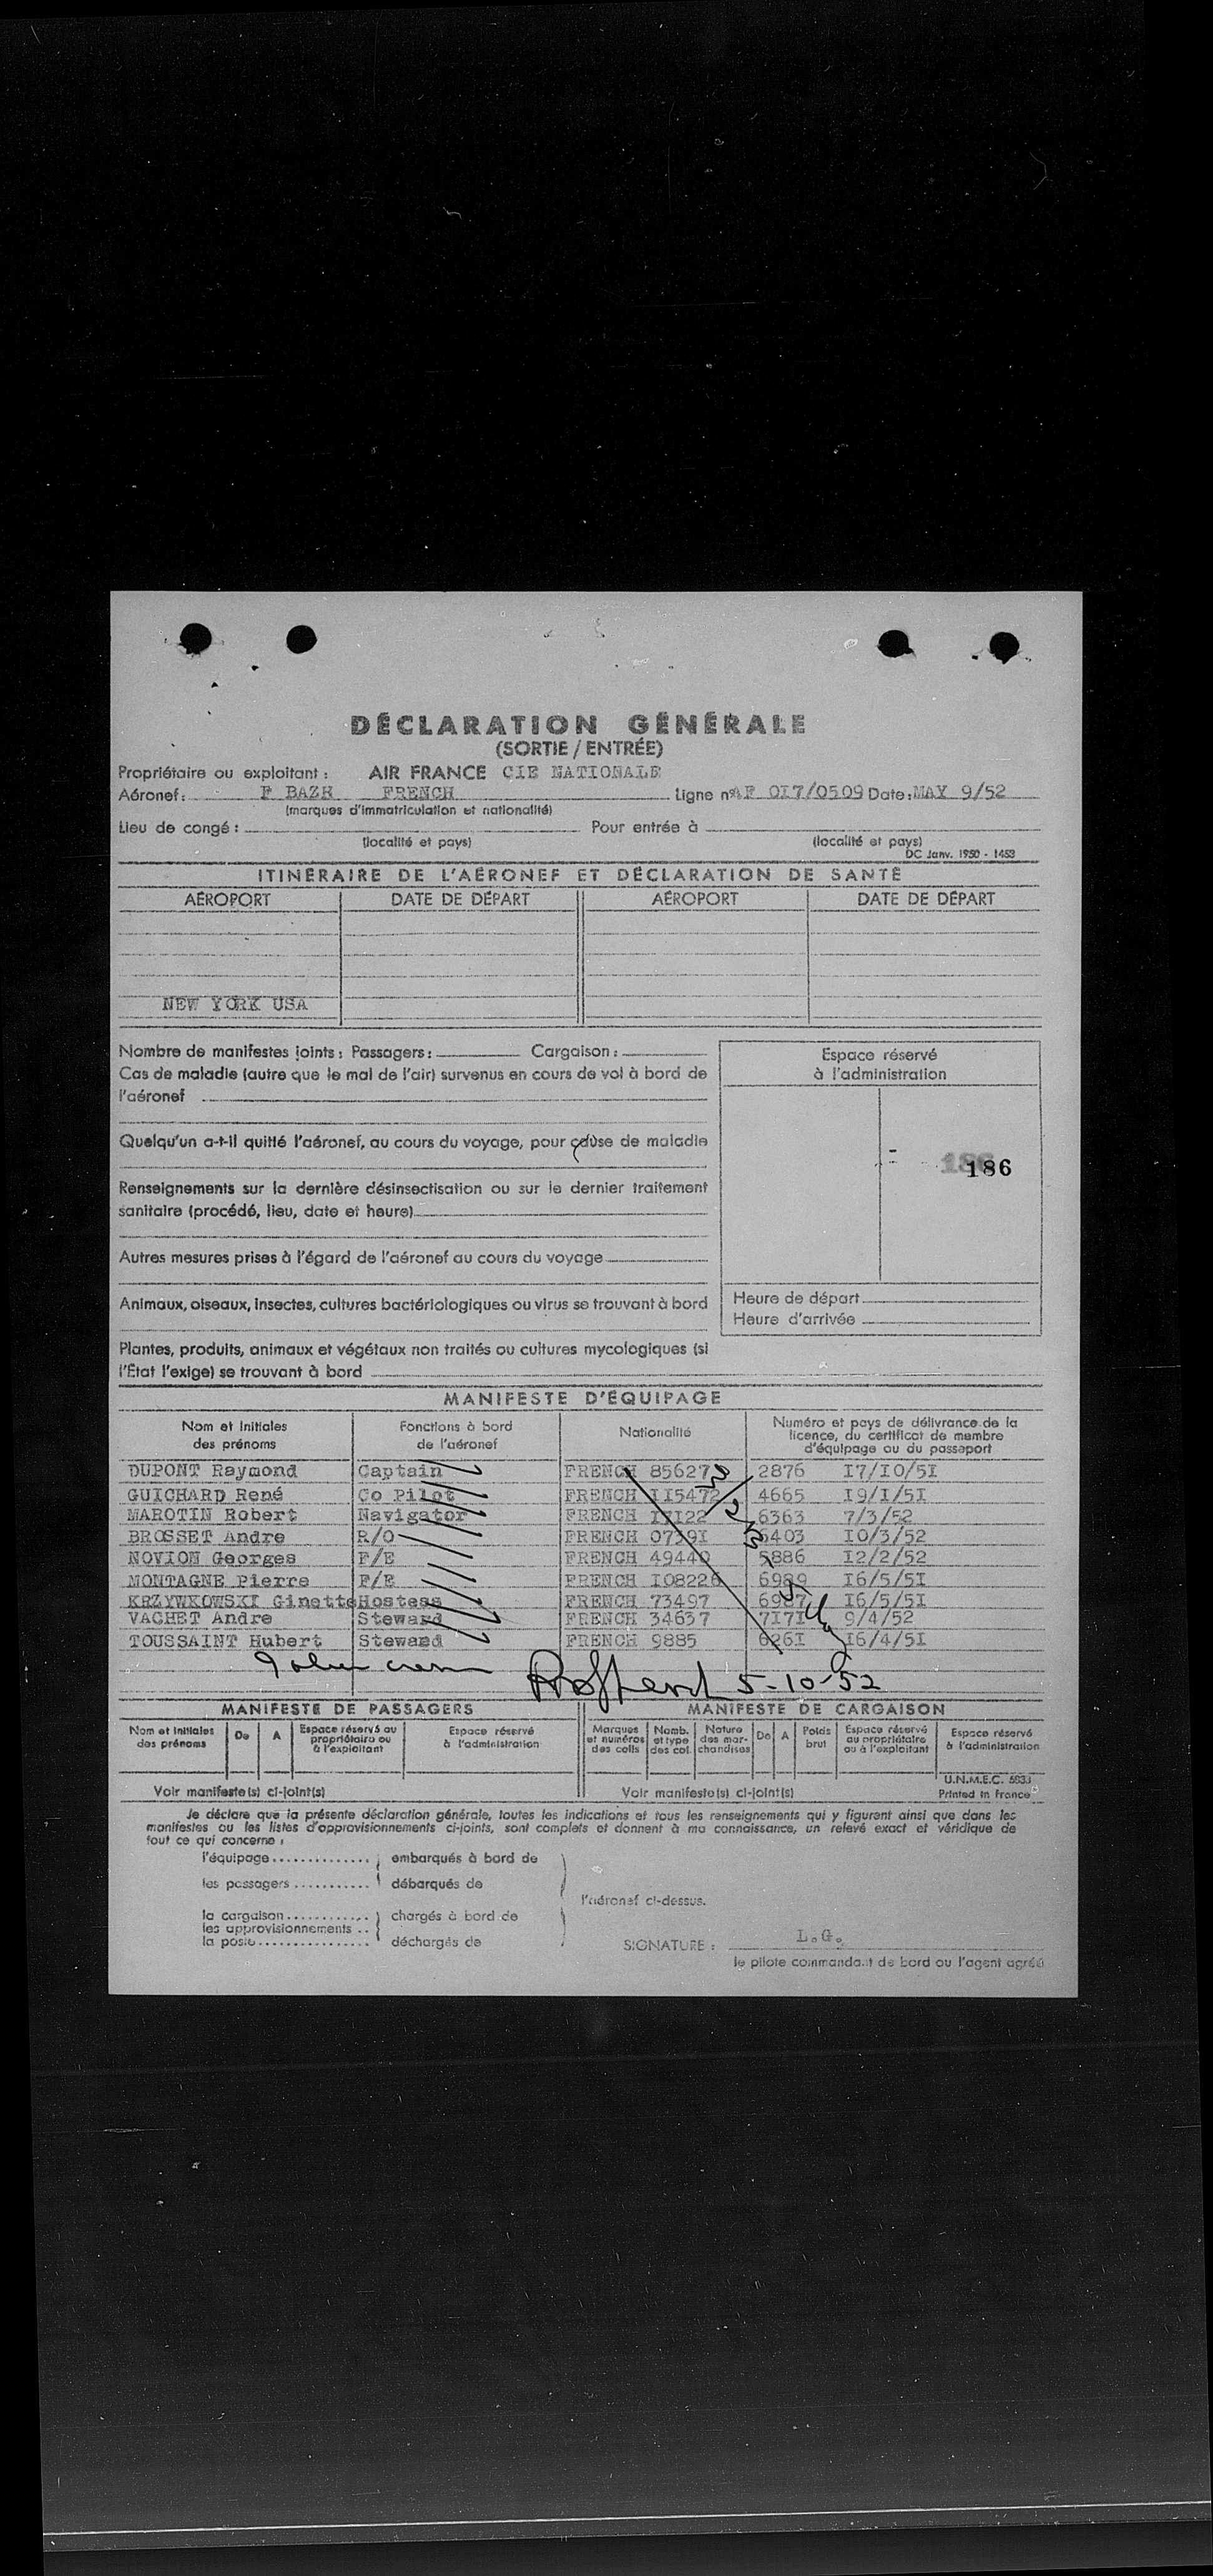 DÉCLARATION GÉNÉRALE
(SORTIE / ENTRÉE)
Propriétaire ou exploitant : AIR FRANCE CIE NATIONALE
Aéronef: F BAZH FRENCH Ligne n° AF 0I7/0509 Date: MAY 9/52
(marques d'immatriculation et nationalité)
Lieu de congé : Pour entrée à
(localité et pays) (localité et pays)
DC Janv. 1950 - 1453
ITINÉRAIRE DE L'AÉRONEF ET DÉCLARATION DE SANTÉ
AÉROPORT DATE DE DÉPART AÉROPORT DATE DE DÉPART
NEW YORK USA
Nombre de manifestes joints : Passagers : Cargaison :
Cas de maladie (autre que le mal de l'air) survenus en cours de vol à bord de
l'aéronef
Quelqu'un a-t-il quitté l'aéronef, au cours du voyage, pour cause de maladie
Renseignements sur la dernière désinsectisation ou sur le dernier traitement
sanitaire (procédé, lieu, date et heure)
Autres mesures prises à l'égard de l'aéronef au cours du voyage
Animaux, oiseaux, insectes, cultures bactériologiques ou virus se trouvant à bord
Plantes, produits, animaux et végétaux non traités ou cultures mycologiques (si
l'État l'exige) se trouvant à bord
Espace réservé
à l'administration
186
186
Heure de départ
Heure d'arrivée
MANIFESTE D'ÉQUIPAGE
Nom et Initiales des prénoms Fonctions à bord de l'aéronef Nationalité Numéro et pays de délivrance de la licence, du certificat de membre d'équipage ou du passeport
DUPONT Raymond Captain FRENCH 2876 I7/IO/5I
GUICHARD René Co Pilot FRENCH II5472 4665 I9/I/5I
MAROTIN Robert Navigator FRENCH 6363 7/3/52
BROSSET Andre R/O FRENCH 6403 IO/3/52
NOVION Georges F/E FRENCH 49440 5886 I2/2/52
MONTAGNE Pierre F/E FRENCH I08226 6989 I6/5/5I
KRZYWKOWSKI Ginette Hostess FRENCH 73497 6987 I6/5/5I
VACHET Andre Steward FRENCH 34637 7I7I 9/4/52
TOUSSAINT Hubert Steward FRENCH 9885 626I I6/4/5I
9 alien crew 5-10-52
MANIFESTE DE PASSAGERS MANIFESTE DE CARGAISON
Nom et Initiales des prénoms De A Espace réservé au propriétaire ou à l'exploitant Espace réservé à l'administration Marques et numéros des colis Nomb. et type des col. Nature des marchandises De A Poids brut Espace réservé au propriétaire ou à l'exploitant Espace réservé à l'administration
U.N.M.E.C. 5833
Voir manifeste(s) ci-joint(s) Voir manifeste(s) ci-joint(s) Printed in France
Je déclare que la présente déclaration générale, toutes les indications et tous les renseignements qui y figurent ainsi que dans les
manifestes ou les listes d'approvisionnements ci-joints, sont complets et donnent à ma connaissance, un relevé exact et véridique de
tout ce qui concerne :
l'équipage.............. embarqués à bord de
les passagers........... débarqués de
l'aéronef ci-dessus.
la cargaison............ chargés à bord de
les approvisionnements ..
la poste................ déchargés de
SIGNATURE : L.G.
le pilote commandant de bord ou l'agent agréé